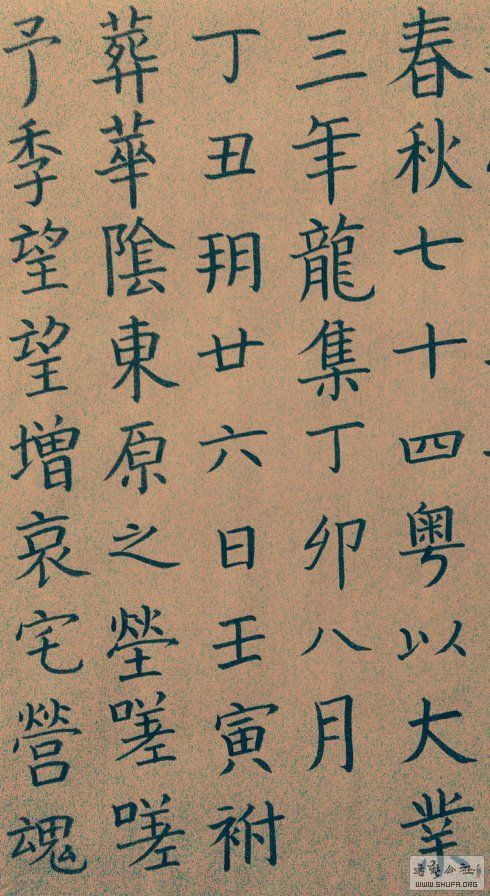 春秋七十四粤以大業
三年龍集丁卯八月
丁丑朔廿六日壬寅祔
葬華陰東原之塋嗟嗟
予季望望增哀宅營魂
WWW.SHUFA.ORG